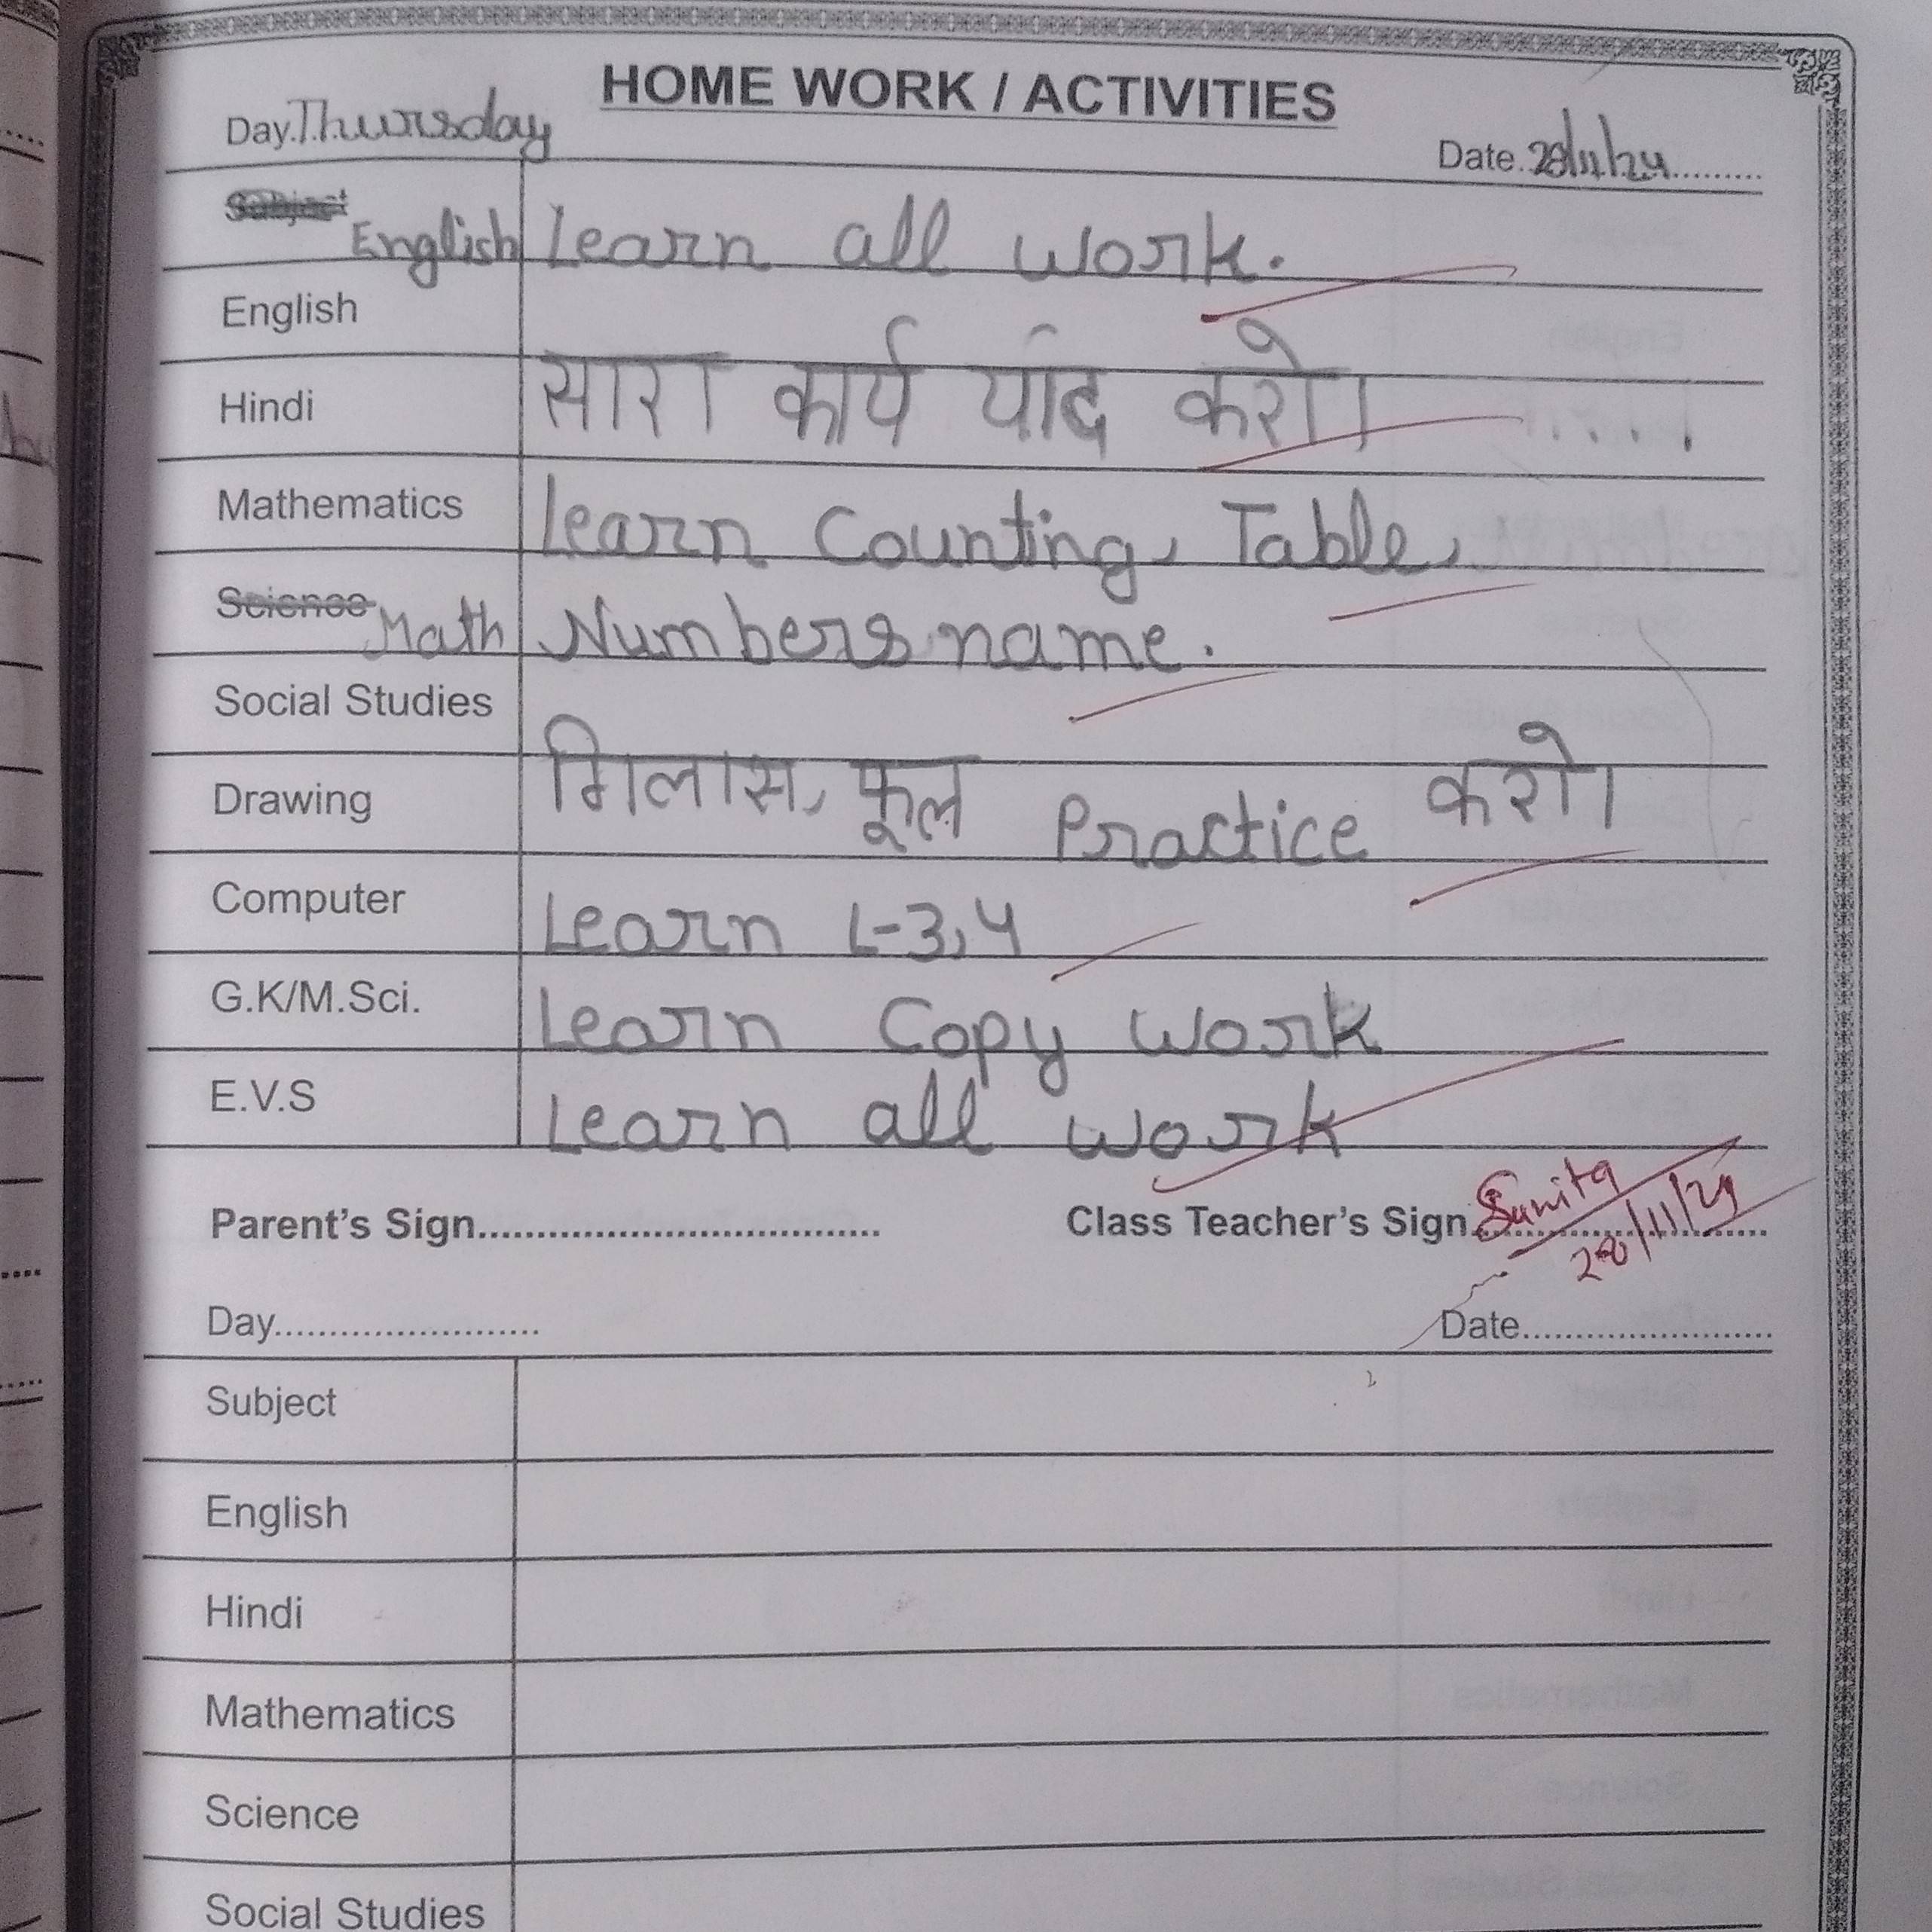 HOME WORK / ACTIVITIES
Day. Thursday
Date. 28/11/24
Subject English Learn all work.
English
Hindi सारा कार्य याद करो।
Mathematics Learn Counting, Table,
Science Math Numbers name.
Social Studies
Drawing गिलास, फूल Practice करो।
Computer Learn L-3,4
G.K/M.Sci. Learn Copy work
E.V.S Learn all work
Parent's Sign.................................. Class Teacher's Sign. Sunita
28/11/24
Day........................ Date.......................
Subject
English
Hindi
Mathematics
Science
Social Studies